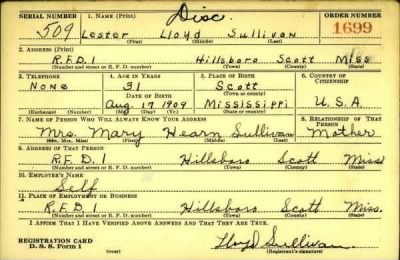 SERIAL NUMBER 1. NAME (Print) Disc. ORDER NUMBER
509 Lester Lloyd Sullivan 1699
(First) (Middle) (Last)
2. ADDRESS (Print)
R.F.D. 1 Hillsboro Scott Miss
(Number and street or R. F. D. number) (Town) (County) (State)
3. TELEPHONE 4. AGE IN YEARS 5. PLACE OF BIRTH 6. COUNTRY OF CITIZENSHIP
None 31 Scott
DATE OF BIRTH (Town or county)
Aug. 17 1909 Mississippi U.S.A.
(Exchange) (Number) (Mo.) (Day) (Yr.) (State or country)
7. NAME OF PERSON WHO WILL ALWAYS KNOW YOUR ADDRESS 8. RELATIONSHIP OF THAT PERSON
Mrs. Mary Hearn Sullivan Mother
(Mr., Mrs., Miss) (First) (Middle) (Last)
9. ADDRESS OF THAT PERSON
R.F.D. 1 Hillsboro Scott Miss
(Number and street or R. F. D. number) (Town) (County) (State)
10. EMPLOYER'S NAME
Self
11. PLACE OF EMPLOYMENT OR BUSINESS
R.F.D. 1 Hillsboro Scott Miss.
(Number and street or R. F. D. number) (Town) (County) (State)
I AFFIRM THAT I HAVE VERIFIED ABOVE ANSWERS AND THAT THEY ARE TRUE.
REGISTRATION CARD
D. S. S. Form 1 Lloyd Sullivan
(Registrant's signature)